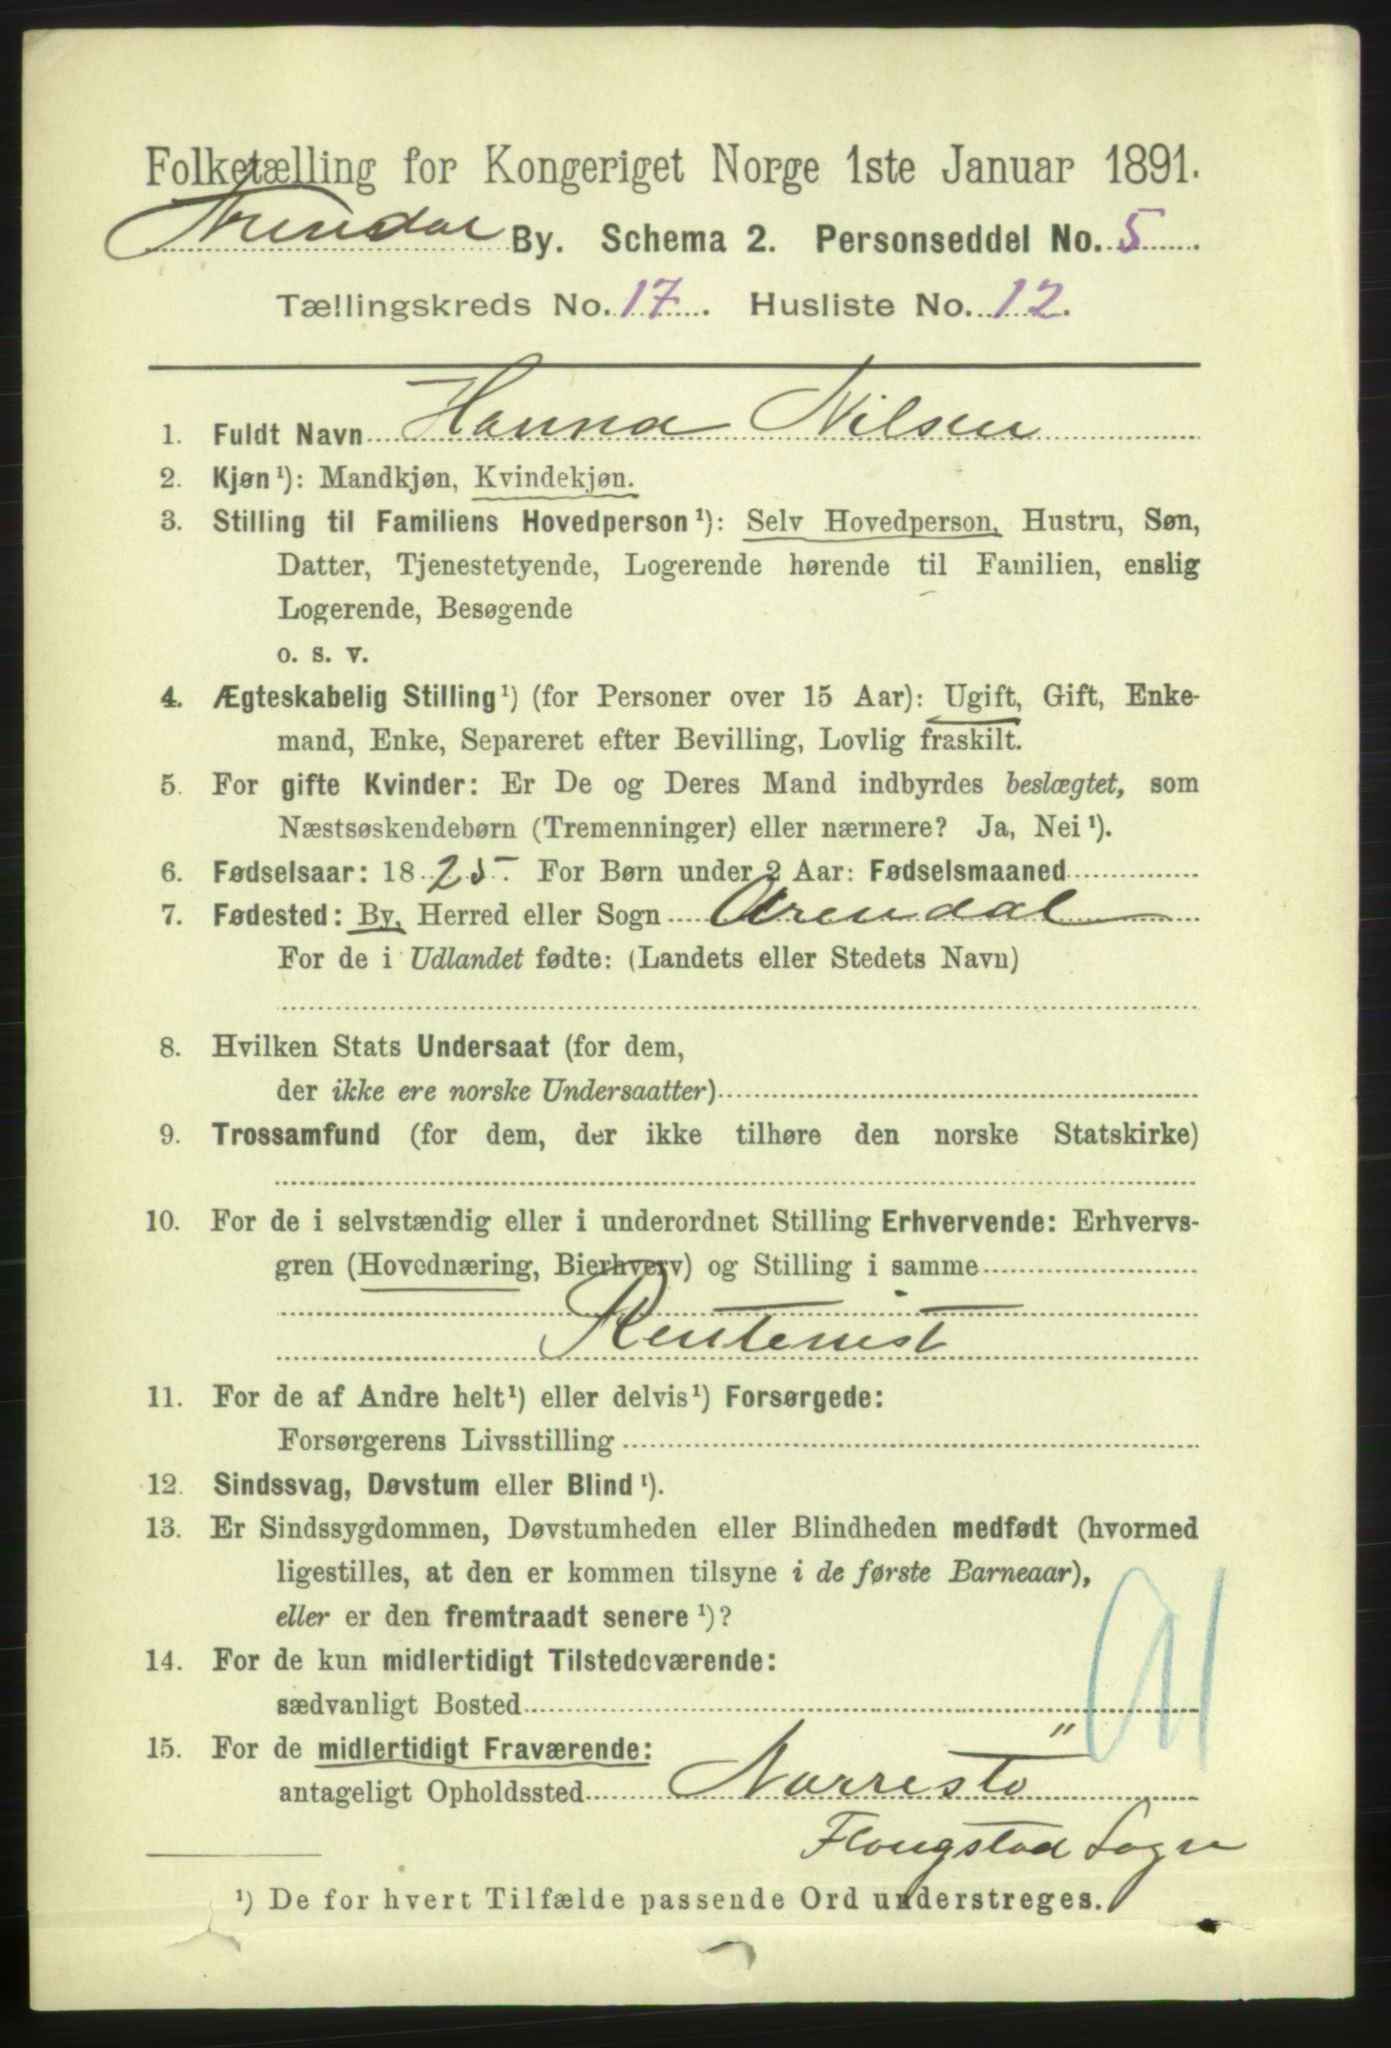 Folketælling for Kongeriget Norge 1ste Januar 1891.
Arendal By. Schema 2. Personseddel No. 5
Tællingskreds No. 17. Husliste No. 12.
1. Fuldt Navn Hanna Nilsen
2. Kjøn ¹): Mandkjøn, Kvindekjøn.
3. Stilling til Familiens Hovedperson ¹): Selv Hovedperson, Hustru, Søn,
Datter, Tjenestetyende, Logerende hørende til Familien, enslig
Logerende, Besøgende
o. s. v.
4. Ægteskabelig Stilling ¹) (for Personer over 15 Aar): Ugift, Gift, Enke-
mand, Enke, Separeret efter Bevilling, Lovlig fraskilt.
5. For gifte Kvinder: Er De og Deres Mand indbyrdes beslægtet, som
Næstsøskendebørn (Tremenninger) eller nærmere? Ja, Nei ¹).
6. Fødselsaar: 1825. For Børn under 2 Aar: Fødselsmaaned
7. Fødested: By, Herred eller Sogn Arendal
For de i Udlandet fødte: (Landets eller Stedets Navn)
8. Hvilken Stats Undersaat (for dem,
der ikke ere norske Undersaatter)
9. Trossamfund (for dem, der ikke tilhøre den norske Statskirke)
10. For de i selvstændig eller i underordnet Stilling Erhvervende: Erhvervs-
gren (Hovednæring, Bierhverv) og Stilling i samme
Rentenist
11. For de af Andre helt ¹) eller delvis ¹) Forsørgede:
Forsørgerens Livsstilling
12. Sindssvag, Døvstum eller Blind ¹).
13. Er Sindssygdommen, Døvstumheden eller Blindheden medfødt (hvormed
ligestilles, at den er kommen tilsyne i de første Barneaar),
eller er den fremtraadt senere ¹)?
14. For de kun midlertidigt Tilstedeværende:
sædvanligt Bosted
15. For de midlertidigt Fraværende:
antageligt Opholdssted Narrestö
Sogn
¹) De for hvert Tilfælde passende Ord understreges.